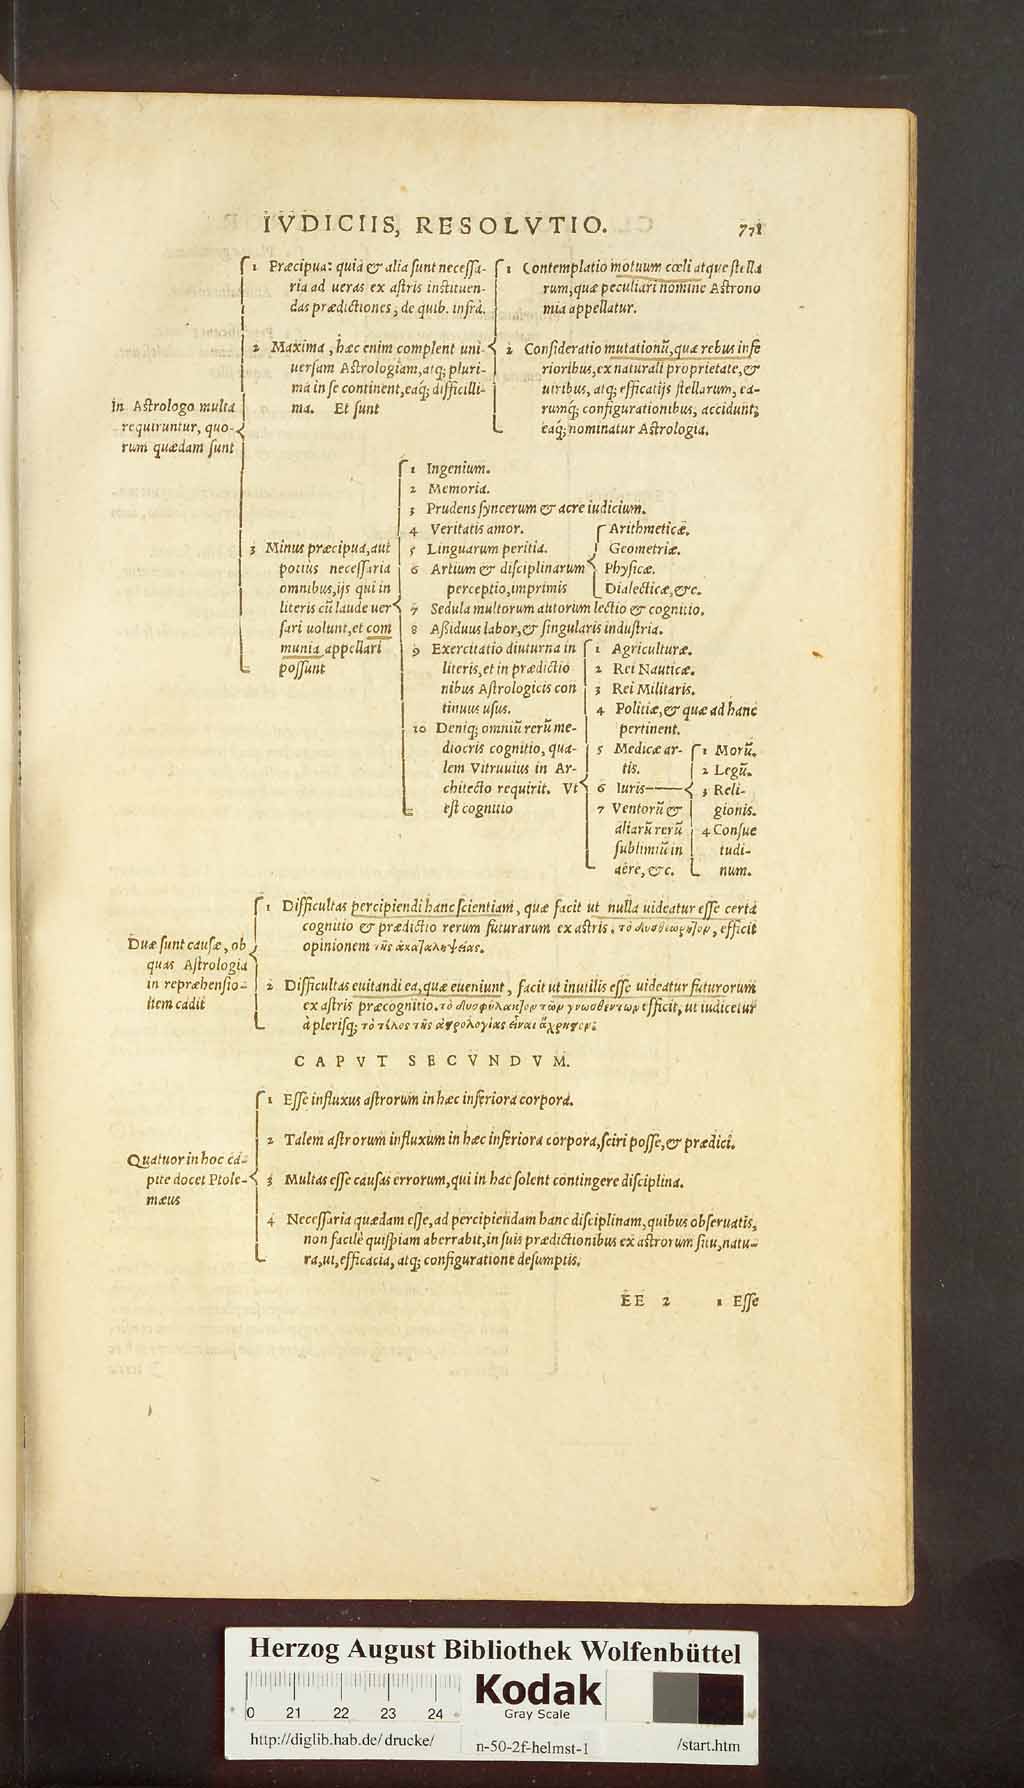 IVDICIIS, RESOLVTIO. 771
In Astrologo multa
requiruntur, quo-
rum quædam sunt
1 Præcipua: quia & alia sunt necessa-
ria ad ueras ex astris instituen-
das prædictiones, de quib. infrà.
2 Maxima, hæc enim complent uni-
uersam Astrologiam, atq; pluri-
ma in se continent, eaq́; difficilli-
ma. Et sunt
1 Contemplatio motuum cœli atque stella
rum, quæ peculiari nomine Astrono
mia appellatur.
2 Consideratio mutationũ, quæ rebus infe
rioribus, ex naturali proprietate, &
uiribus, atq; efficatijs stellarum, ea-
rumq́; configurationibus, accidunt,
eaq́; nominatur Astrologia.
3 Minus præcipua, aut
potius necessaria
omnibus, ijs qui in
literis cũ laude uer
sari uolunt, et com
munia appellari
possunt
1 Ingenium.
2 Memoria.
3 Prudens syncerum & acre iudicium.
4 Veritatis amor.
5 Linguarum peritia.
6 Artium & disciplinarum
perceptio, imprimis
Arithmeticæ.
Geometriæ.
Physicæ.
Dialecticæ, &c.
7 Sedula multorum autorum lectio & cognitio.
8 Aßiduus labor, & singularis industria.
9 Exercitatio diuturna in
literis, et in prædictio
nibus Astrologicis con
tinuus usus.
10 Deniq; omniũ rerũ me-
diocris cognitio, qua-
lem Vitruuius in Ar-
chitecto requirit. Vt
est cognitio
1 Agriculturæ.
2 Rei Nauticæ.
3 Rei Militaris.
4 Politiæ, & quæ ad hanc
pertinent.
5 Medicæ ar-
tis.
6 Iuris
7 Ventorũ &
aliarũ rerũ
sublimiũ in
aëre, &c.
1 Morũ.
2 Legũ.
3 Reli-
gionis.
4 Consue
tudi-
num.
Duæ sunt causæ, ob
quas Astrologia
in reprehensio-
nem cadit
1 Difficultas percipiendi hanc scientiam, quæ facit ut nulla uideatur esse certa
cognitio & prædictio rerum futurarum ex astris. τὸ δυσθεώρητον, efficit
opinionem τῆς ἀκαταληψείας.
2 Difficultas euitandi ea, quæ eueniunt, facit ut inutilis esse uideatur futurorum
ex astris præcognitio. τὸ δυσφύλακτον τῶν γνωσθέντων efficit, ut iudicetur
à plerisq; τὸ τέλος τῆς ἀστρολογίας εἶναι ἄχρηστον.
CAPVT SECVNDVM.
Quatuor in hoc ca-
pite docet Ptole-
mæus
1 Esse influxus astrorum in hæc inferiora corpora.
2 Talem astrorum influxum in hæc inferiora corpora, sciri posse, & prædici.
3 Multas esse causas errorum, qui in hac solent contingere disciplina.
4 Necessaria quædam esse, ad percipiendam hanc disciplinam, quibus obseruatis,
non facilè quispiam aberrabit, in suis prædictionibus ex astrorum situ, natu-
ra, ui, efficacia, atq; configuratione desumptis.
EE 2 1 Esse
Herzog August Bibliothek Wolfenbüttel
0 21 22 23 24
Kodak
Gray Scale
http://diglib.hab.de/drucke/ n-50-2f-helmst-1 /start.htm